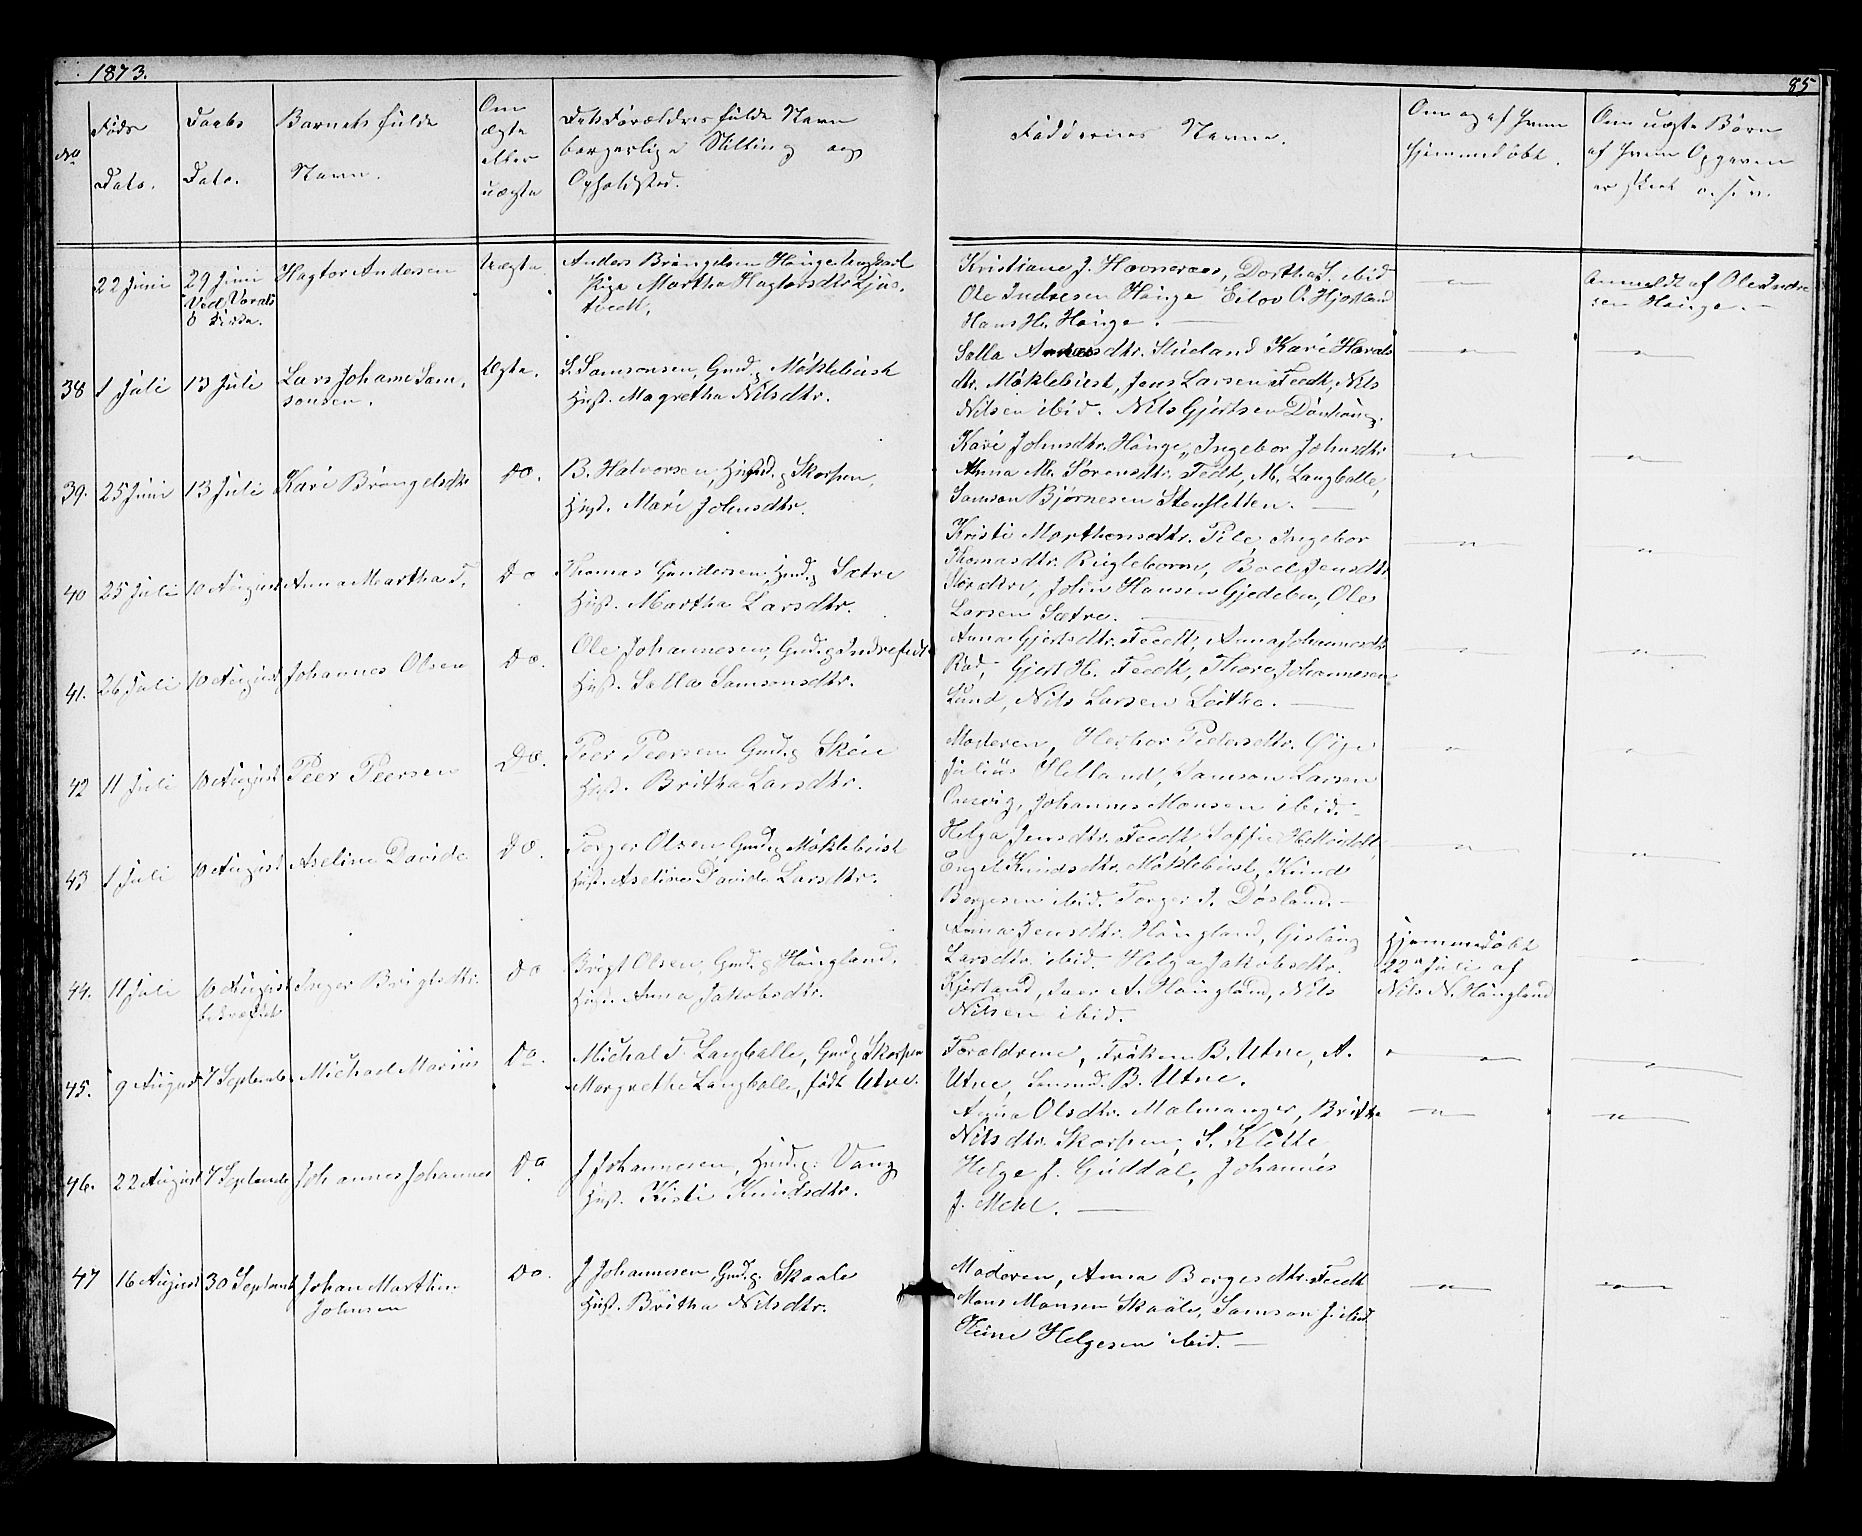 1873.
85
No
Føds
Dato.
Daabs
Dato.
Barnets fulde
Navn.
Om
ægte
eller
uægte
Dets Forældres fulde Navn
borgerlige Stilling og
Opholdsted.
Faddernes Navne.
Om og af hvem
hjemmedøbt.
Om uægte Børn
af hvem Opgaven
er skeet o.s.v.
22 Juni
29 Juni
Ved
Hagtor Andersen
Uægte.
Anders Brüngelsen Haüge
Pige Martha Hagtorsdtr.
Kristiane J. Dortha S. ibid
Ole Indresen Haüge Eilov O.
Hans H. Haüge.
Anmeldt af Ole Indre
sen Haüge.
38
1 Juli
13 Juli
Lars Johanes Sam
sonsen.
Ægte.
S. Samsonsen, Gmd. Møklebüst
Hust. Magretha Nilsdtr.
Salla Kari
dtr. Møklebüst, Jens Larsen Feedt, Nils
Nilsen ibid. Nils Gjertsen
39.
25 Juni
13 Juli
Kari Brüngelsdtr
Do.
B. Halvorsen, Skorpen,
Hust. Mari Johnsdtr.
Kari Johnsdtr. Haüge, Ingebor Johnsdtr
Anna M. Sørensdtr. Fedt, M. Langballe,
Samson Bjørnesen Stensletten.
40
25 Juli
10 August
Anna Martha T.
Do
Thomas Gundersen, Hmd. Sætre
Hust. Martha Larsdtr.
Kristi Morthensdtr. Ingebor
Thomasdtr. Boel Jensdtr
John Hansen Gjedebø, Ole
Larsen Sætre.
41.
26 Juli
10 August
Johannes Olsen
Do.
Ole Johannesen, Gmd. Indrefedt
Hust. Salla Samsonsdtr.
Anna Gjertsdtr. Feedt, Anna Johannesdtr
Gjert H. Feedt, Thore Johannesen
Nils Larsen
42
11 Juli
10 August
Peer Peersen
Do.
Peer Peersen Gmd. Skeie
Hust. Britha Larsdtr.
Moderen, Herbor Pedersdtr.
Julius Helland, Samson Larsen
Johannes Monsen ibid.
43
1 Juli
10 August
Aseline Davida
Do.
Torger Olsen, Gmd. Møklebüst
Hust. Aseline Davida Larsdtr.
Helga Jensdtr. Feedt, Soffie
Engel Knudsdtr. Møklebüst, Knud
Borgesen ibid. Torger J. Døsland.
44.
11 Juli
10 August
bekræftet
Inger Brigtsdtr.
Do
Brigt Olsen, Gmd. Haügland.
Hust. Anna Jakobsdtr.
Anna Jensdtr. Haügland, Gislaüg
Larsdtr. ibid. Helga Jakobsdtr.
Iver A. Haügland, Nils
Nilsen ibid.
Hjemmedøbt
22 Juli af
Nils N. Haügland
45.
9 August
7 September
Michael Marius
Do.
Michal F. Langballe, Gmd. Skorpen
Margrethe Langballe, født Utne.
Forældrene, Frøken B. Utne, A.
Utne, B. Utne.
46.
22 August
7 September
Johannes Johannes
Do
J Johannesen, Hmd. Vang
Hust. Kristi Knudsdtr.
Anna Olsdtr. Malmanger, Britha
Nilsdtr. Skorpen, S. Kløtte
Helge J. Guddal, Johannes
J. Mehl.
47
16 August
30 Septemb
Johan Marthin
Johnsen
Do.
J Johannesen, Gmd. Skaale
Hust. Britha Nilsdtr.
Moderen, Anna Borgesdtr. Feedt
Mons Monsen Skaale, Samson J. ibid.
Helgesen ibid.